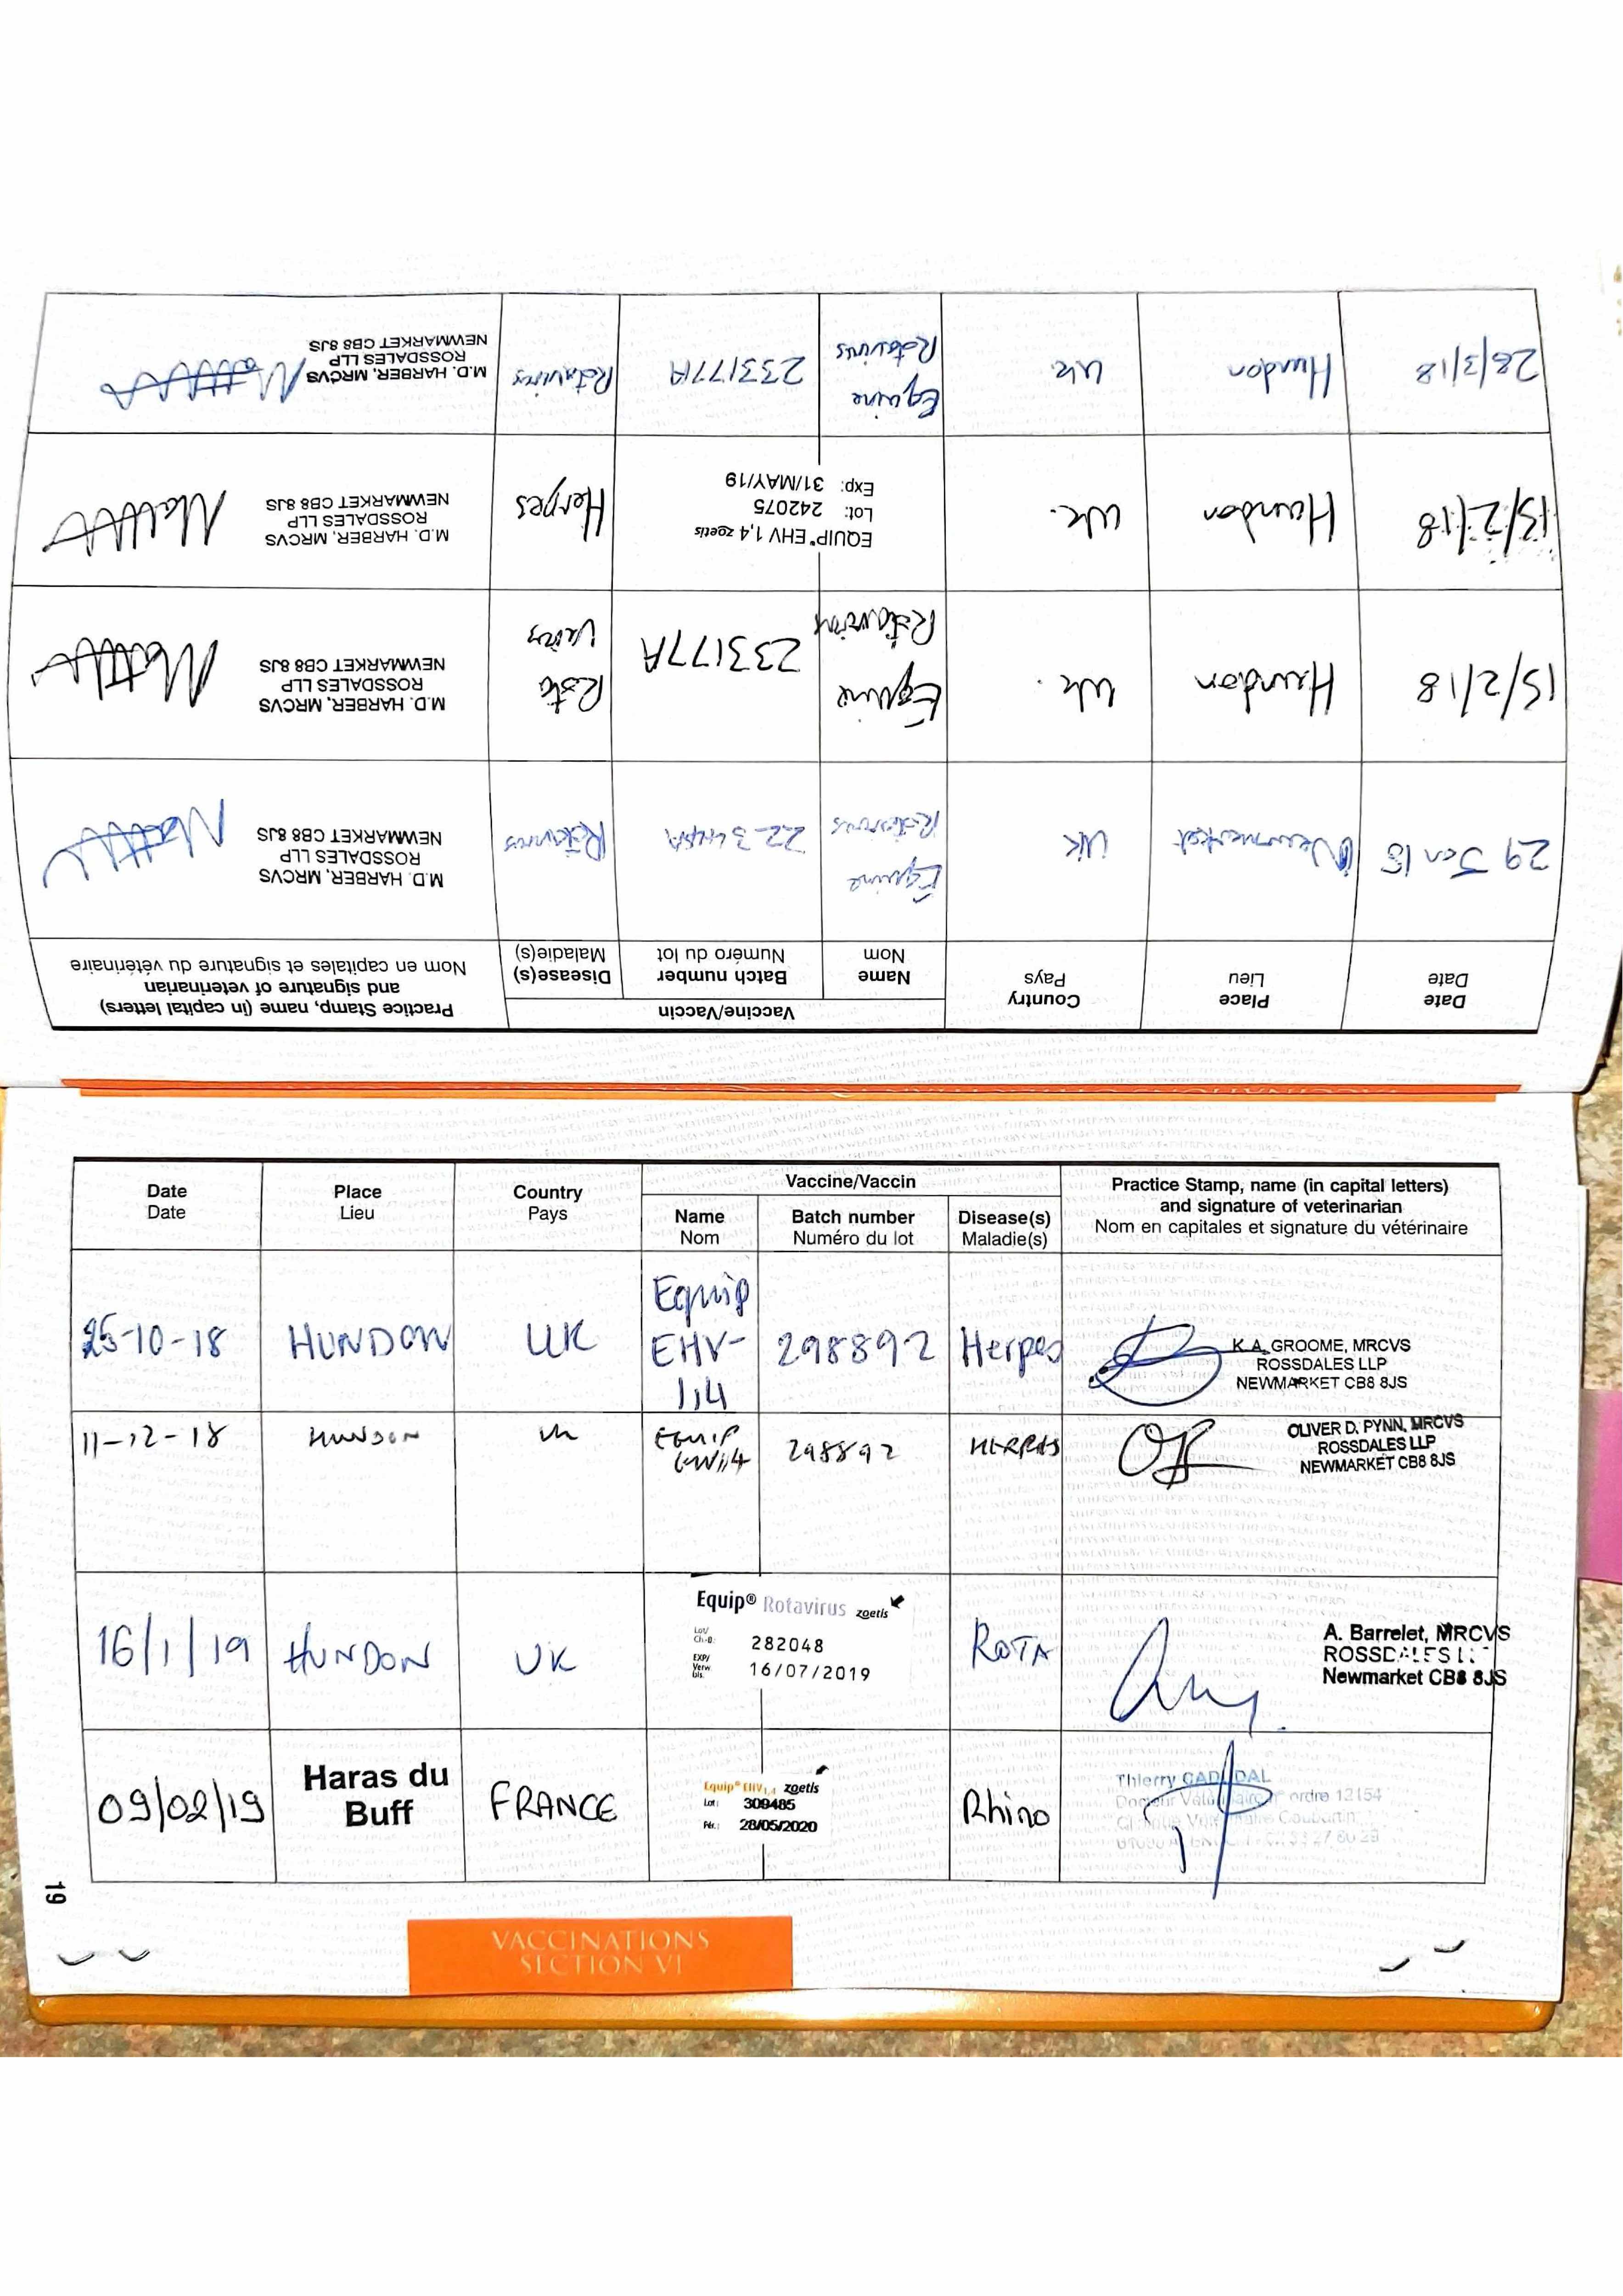 Date
Date
Place
Lieu
Country
Pays
Vaccine/Vaccin
Name
Nom
Batch number
Numéro du lot
Disease(s)
Maladie(s)
Practice Stamp, name (in capital letters)
and signature of veterinarian
Nom en capitales et signature du vétérinaire
29 Jan 18
Newmarket
UK
Equine
Rotavirus
Rotavirus
M.D. HARBER, MRCVS
ROSSDALES LLP
NEWMARKET CB8 8JS
15/2/18
Hundon
UK.
Equine
Rotavirus
233177A
Rota
virus
M.D. HARBER, MRCVS
ROSSDALES LLP
NEWMARKET CB8 8JS
15/2/18
Hundon
UK.
EQUIP® EHV 1,4 zoetis
Lot: 242075
Exp: 31/MAY/19
Herpes
M.D. HARBER, MRCVS
ROSSDALES LLP
NEWMARKET CB8 8JS
Hundon
UK
Equine
Rotavirus
233177A
Rotavirus
M.D. HARBER, MRCVS
ROSSDALES LLP
NEWMARKET CB8 8JS
Date
Date
Place
Lieu
Country
Pays
Vaccine/Vaccin
Name
Nom
Batch number
Numéro du lot
Disease(s)
Maladie(s)
Practice Stamp, name (in capital letters)
and signature of veterinarian
Nom en capitales et signature du vétérinaire
25-10-18
HUNDON
UK
Equip
EHV-
1,4
298892
Herpes
K.A. GROOME, MRCVS
ROSSDALES LLP
NEWMARKET CB8 8JS
11-12-18
HUNDON
UK
EQUIP
EHV1,4
298892
HERPES
OLIVER D. PYNN, MRCVS
ROSSDALES LLP
NEWMARKET CB8 8JS
16/1/19
HUNDON
UK
Equip® Rotavirus zoetis
Lot/
Ch.-B:
282048
EXP/
Verw
bis.
16/07/2019
ROTA
A. Barrelet, MRCVS
ROSSDALES
Newmarket CB8 8JS
09/02/19
Haras du
Buff
FRANCE
Equip® EHV1,4 zoetis
Lot: 309485
Pér.: 28/05/2020
Rhino
Thierry
ordre 12154
19
VACCINATIONS
SECTION VI